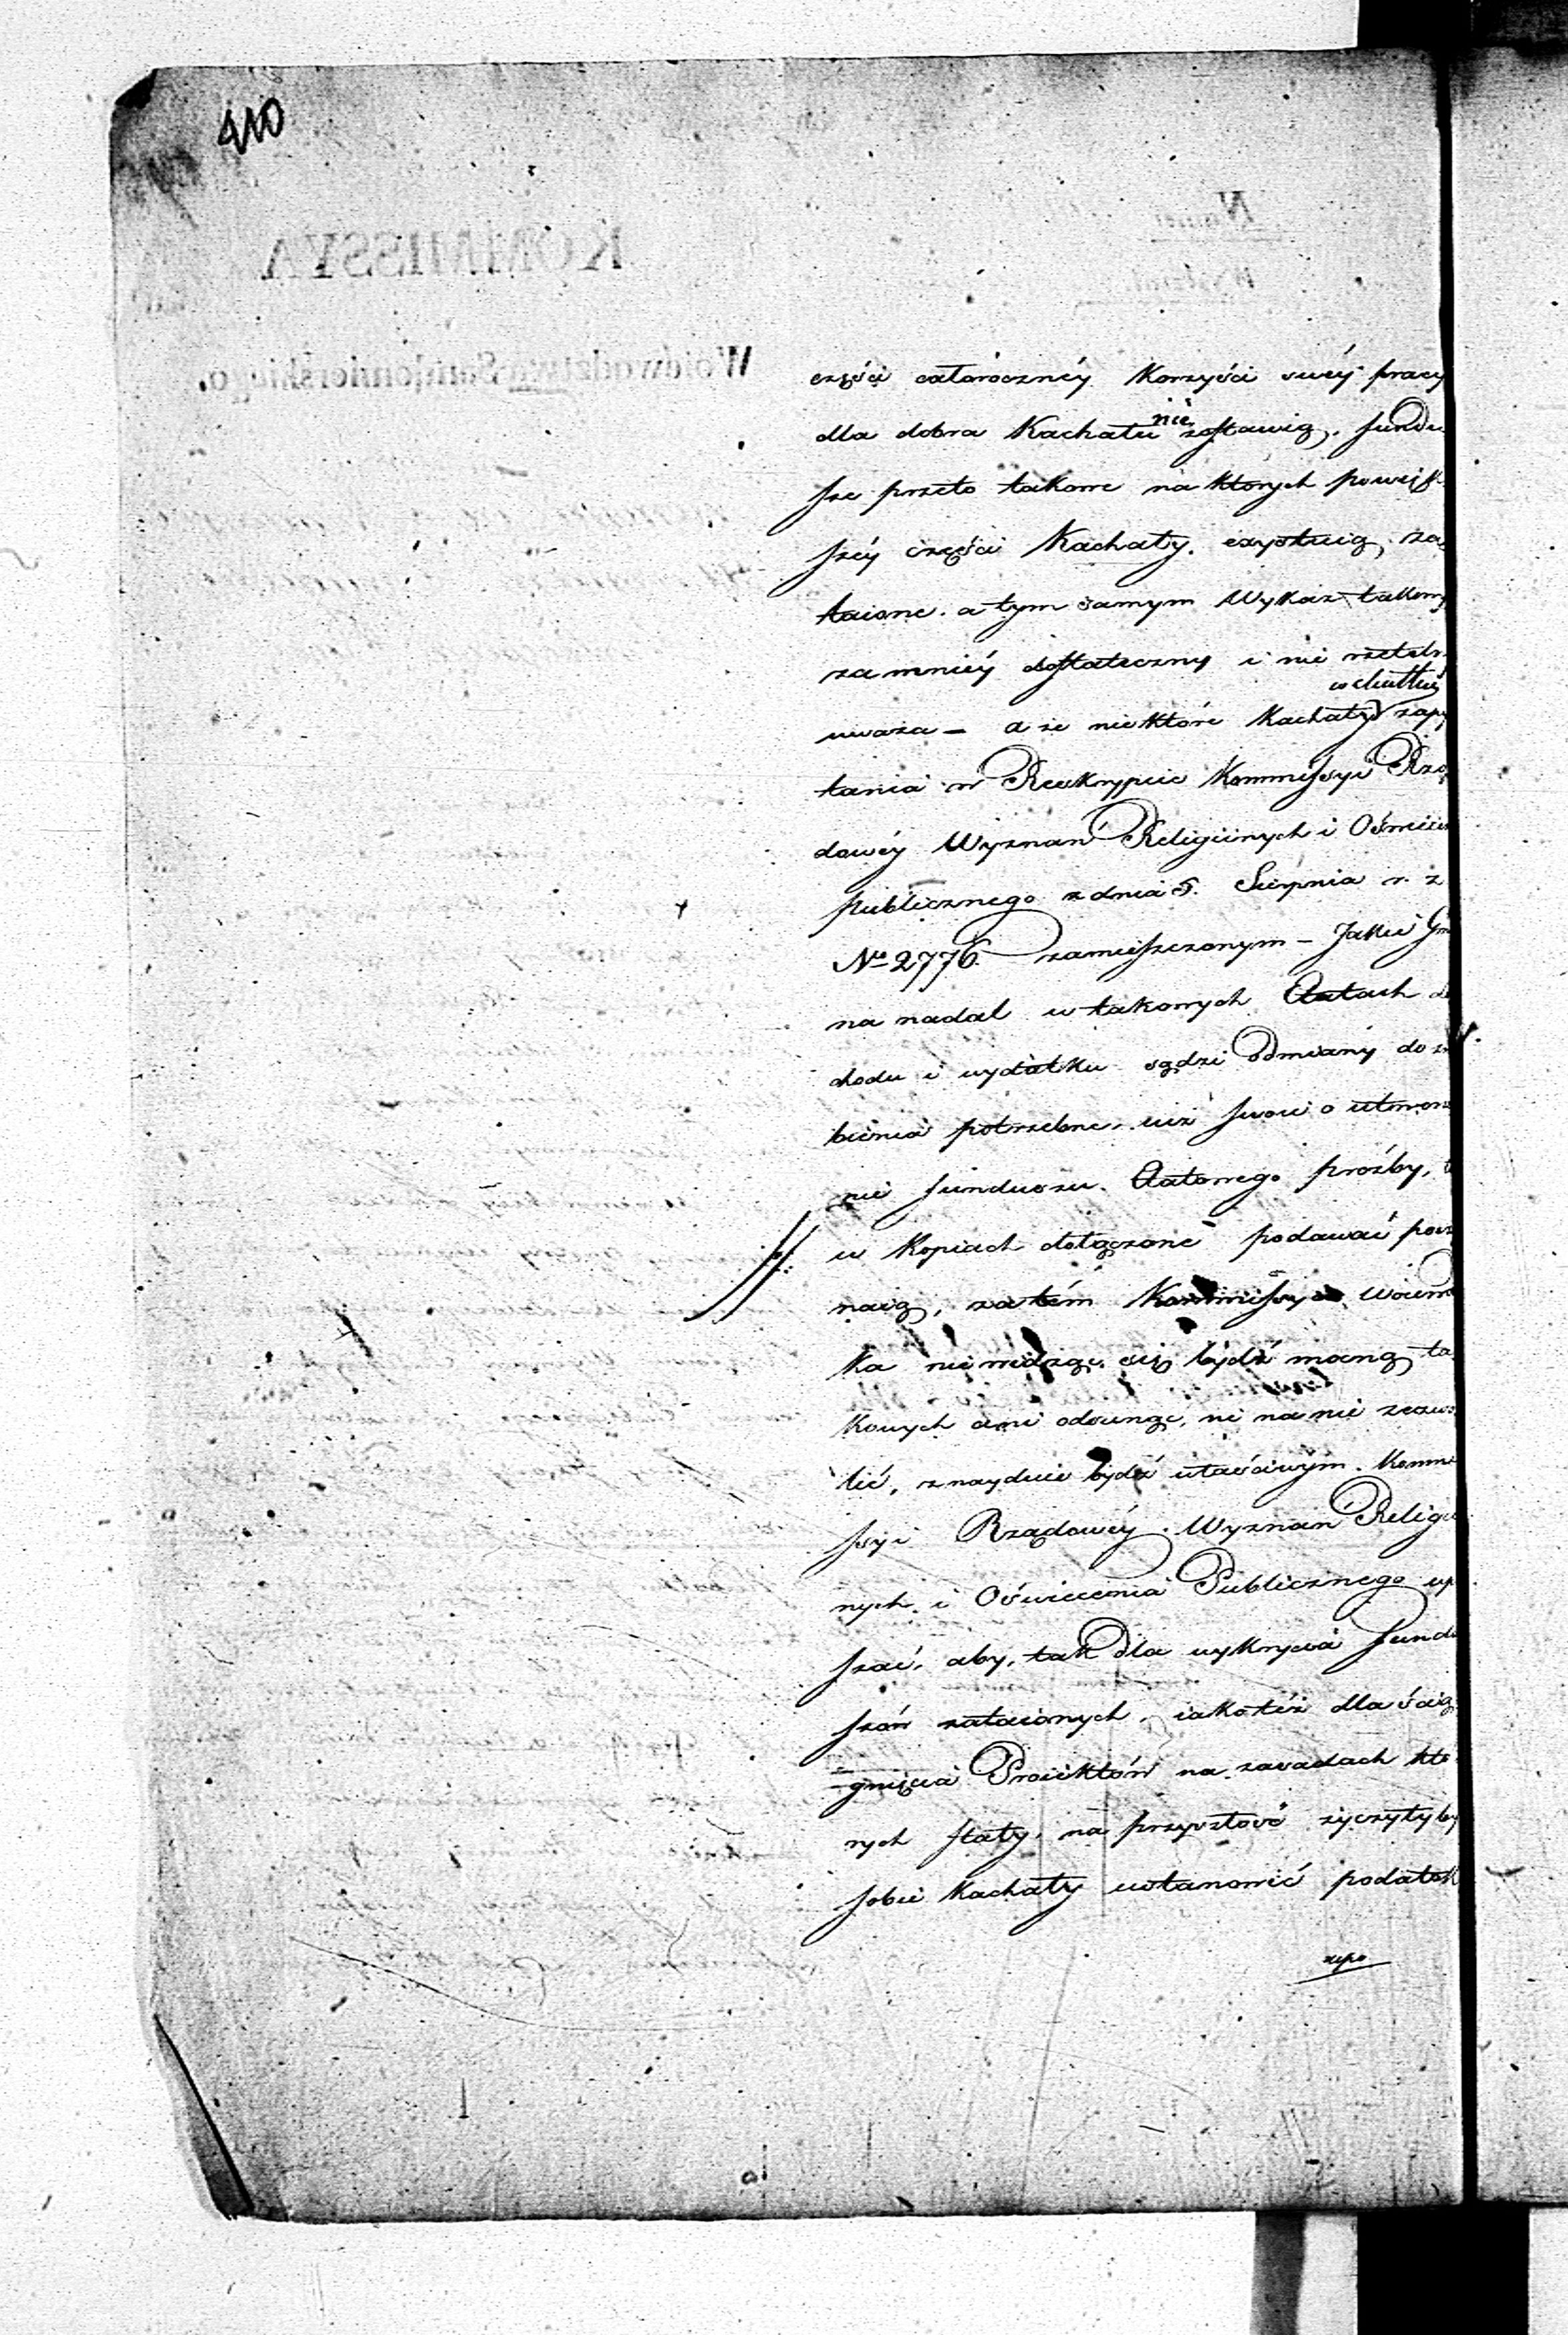 410
części całoroczney Korzyści swéy pracy
dla dobra Kachału nie zostawią. fundu
sze przeto takowe na których powięk
széy części Kachały. exystuią, za
taione. a tym samym Wykaz takowy
za mniéy dostateczny i nie rzeteln
uważa — a że niektóre Kachały w skutku zapy
tania w Reskrypcie Kommissyi Rzą
dowéy Wyznań Religiinych i Oświec
publicznego z dnia 5. Sierpnia r. z
No 2776 zamieszczonym — Jakie Gmi
na nadal w takowych Etatach do
chodu i wydatku sądzi odmiany do zro
bienia potrzebne, iuż swoie o utworze
nie funduszu Etatowego proźby, t
w Kopiach dołączone podawać poczy
naią, zatém Kommissya Woiewódz
ka nie widząc się bydź mocną ta
kowych ani odsunąć, ni na nie zezwo
lić, znayduie bydź właściwym. Kommi
ssyi Rządowéy. Wyznań Religii
nych. i Oświecenia Publicznego up
szać, aby, tak dla wykrycia fundu
szów zataionych, iakoteż dla ścią
gnięcia Proiektów na zasadach któ
rych Etaty, na przyszłość życzyłyby
sobie Kachały ustanowić podatek